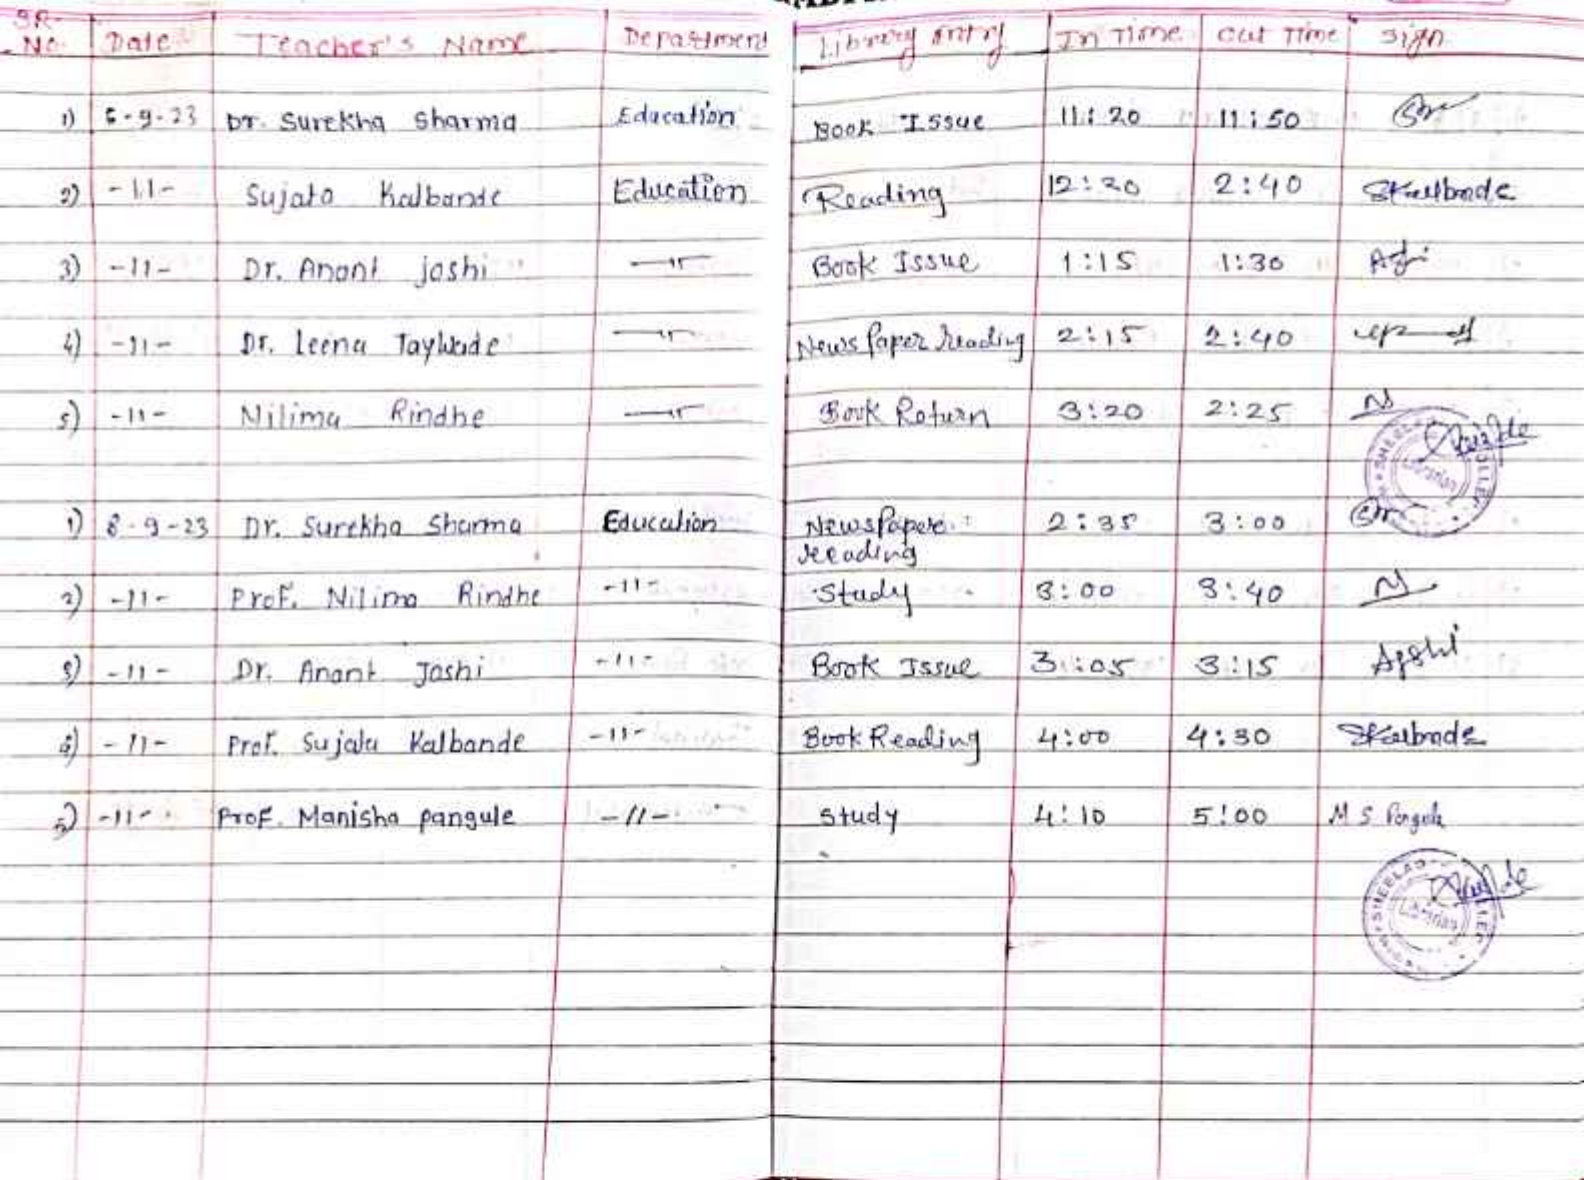 SR. No. Date Teacher's Name Department Library Entry In Time Out Time Sign
1) 6-9-23 Dr. Surekha Sharma Education Book Issue 11:20 11:50 Sm
2) -11- Sujata Kalbande Education Reading 12:20 2:40 SKalbande
3) -11- Dr. Anant joshi —"— Book Issue 1:15 1:30
4) -11- Dr. Leena Taywade —"— News Paper reading 2:15 2:40
5) -11- Nilima Rindhe —"— Book Return 3:20 2:25 N
Librarian
1) 8-9-23 Dr. Surekha Sharma Education Newspaper 2:35 3:00 Sm
reading
2) -11- Prof. Nilima Rindhe -11- Study 3:00 3:40 N
3) -11- Dr. Anant Joshi -11- Book Issue 3:05 3:15 AJoshi
4) -11- Prof. Sujata Kalbande -11- Book Reading 4:00 4:30 SKalbande
5) -11- Prof. Manisha pangule -11- study 4:10 5:00 M S Pangule
Librarian